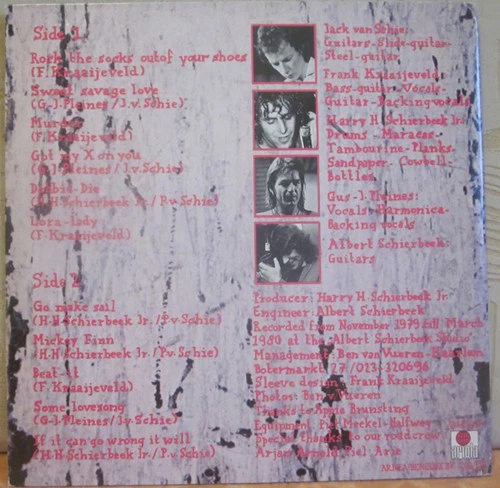 Side 1
Rock the socks outof your shoes
(F. Kraaijeveld)
Sweet savage love
(G-J-Pleines/J.v.Schie)
Murder
(F. Kraaijeveld)
Got my X on you
(G-J-Pleines/J.v.Schie)
Doobie-Die
(H-H-Schierbeek Jr./P.v.Schie)
Lora-lady
(F. Kraaijeveld)
Side 2
Go make sail
(H-H-Schierbeek Jr./P.v.Schie)
Mickey Finn
(H-H-Schierbeek Jr./P.v.Schie)
Beat-it
(F. Kraaijeveld)
Some lovesong
(G-J-Pleines/J.v.Schie)
If it can go wrong it will
(H-H-Schierbeek Jr./P.v.Schie)
Jack van Schie:
Guitars-Slide-guitar-
Steel-guitar
Frank Kraaijeveld:
Bass-guitar-Vocals-
Guitar-Backingvocals
Harry H. Schierbeek Jr:
Drums-Maracas-
Tambourine-Planks-
Sandpaper-Cowbell-
Bottles
Gus-J-Pleines:
Vocals-Harmonica-
Backing vocals
Albert Schierbeek:
Guitars
Producer: Harry H. Schierbeek Jr.
Engineer: Albert Schierbeek
Recorded from November 1979 till March
1980 at the "Albert Schierbeek Studio"
Management: Ben van Vueren-Haarlem
Botermarkt 27/023-320696
Sleeve design: Frank Kraaijeveld
Photos: Ben v.Vueren
Thanks to Appie Brunsting
Equipment: Piet Meckel-Halfweg
Special thanks to our roadcrew:
Arjan-Arnold-Piet-Arie
ariola